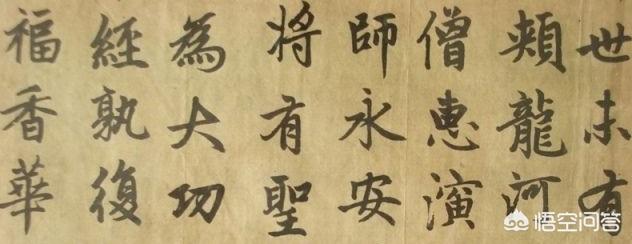 世未有
頰龍河
僧惠演
師永安
将有聖
為大功
經孰復
福香華
悟空问答